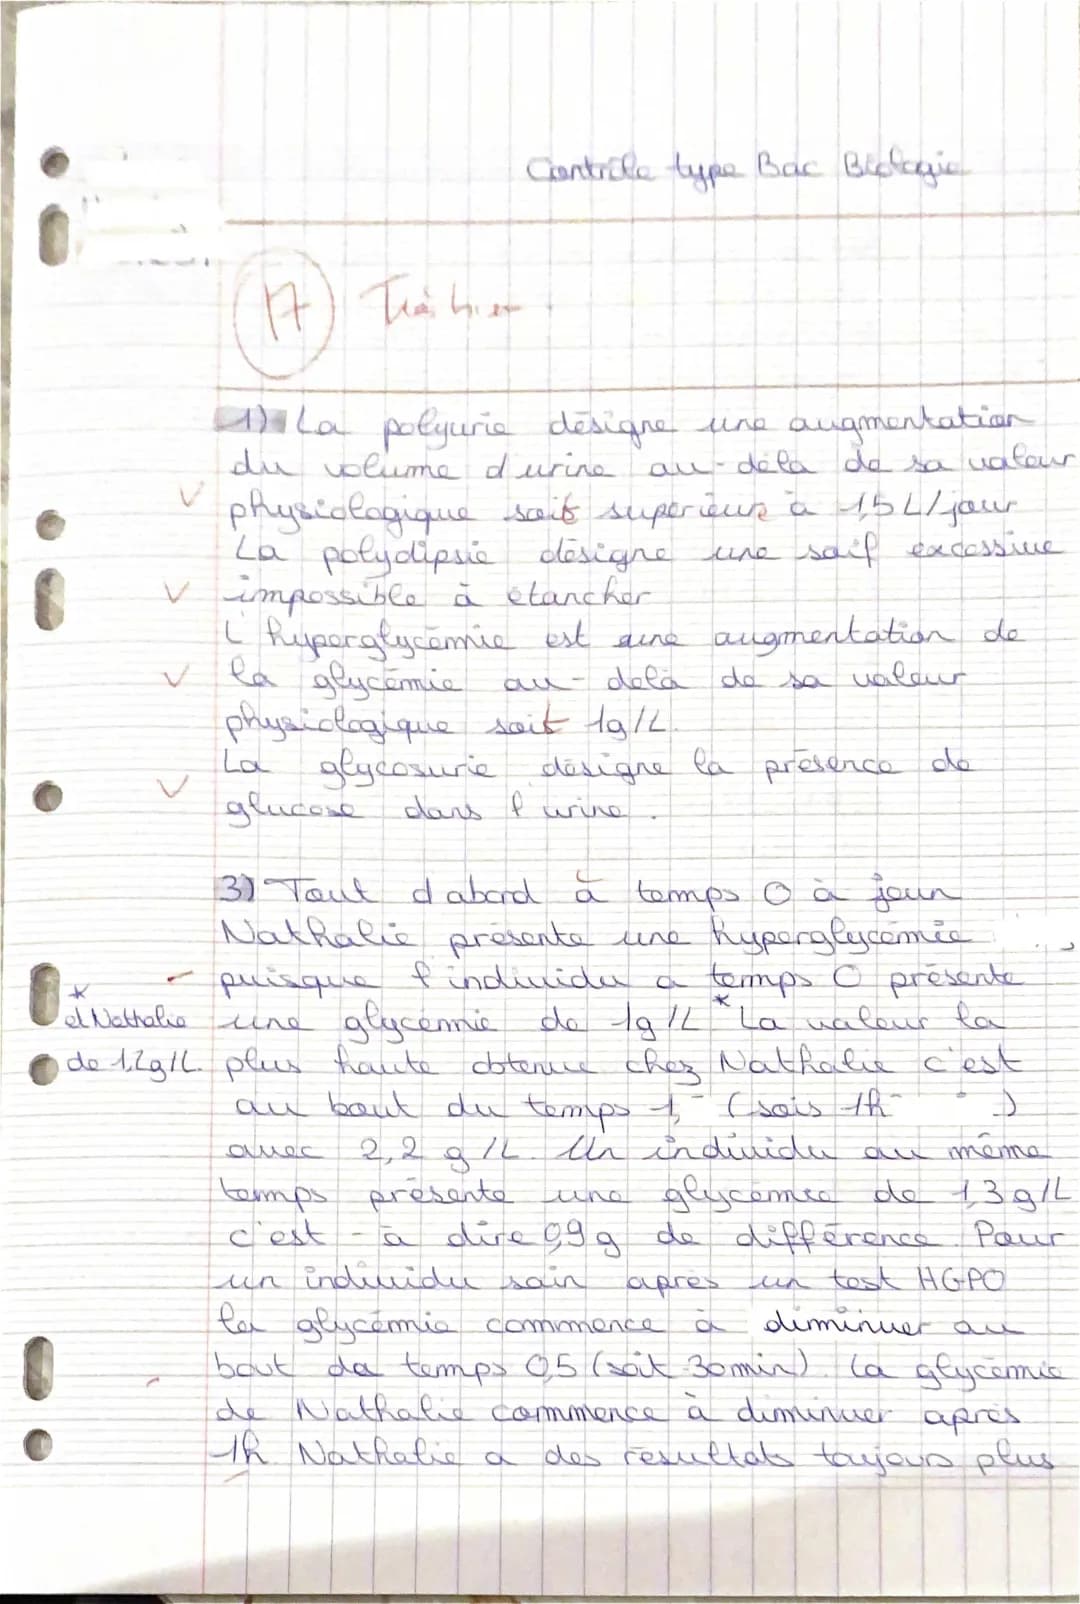 Contrôle type Bac Biologie
17 Très bien
1) La polyurie désigne une augmentation
du volume d'urine au-delà de sa valeur
physiologique soit supérieur à 1,5 L/jour
La polydipsie désigne une soif excessive
impossible à étancher
L'hyperglycémie est une augmentation de
la glycémie au-delà de sa valeur
physiologique soit 1g/L.
La glycosurie désigne la présence de
glucose dans l'urine.
3) Tout d'abord à temps 0 à jeun
Nathalie présente une hyperglycémie
puisque l'individu a temps 0 présente
une glycémie de 1g/L * La valeur la
* et Nathalie
de 1,2g/L.
plus haute obtenue chez Nathalie c'est
au bout du temps 1, (sois 1h)
avec 2,2 g/L. Un individu au même
temps présente une glycémie de 1,3g/L
c'est-à dire 0,9 g de différence. Pour
un individu sain après un test HGPO
la glycémie commence à diminuer au
bout de temps 0,5 (soit 30min). La glycémie
de Nathalie commence à diminuer après
1h. Nathalie a des résultats toujours plus